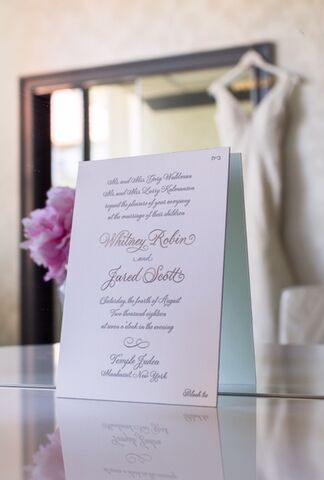 ב״ה
Mr. and Mrs. Terry Waldman
Mr. and Mrs. Larry Kalmanson
request the pleasure of your company
at the marriage of their children
Whitney Robin
and
Jared Scott
Saturday, the fourth of August
Two thousand eighteen
at seven o'clock in the evening
Temple Judea
Manhasset, New York
Black tie